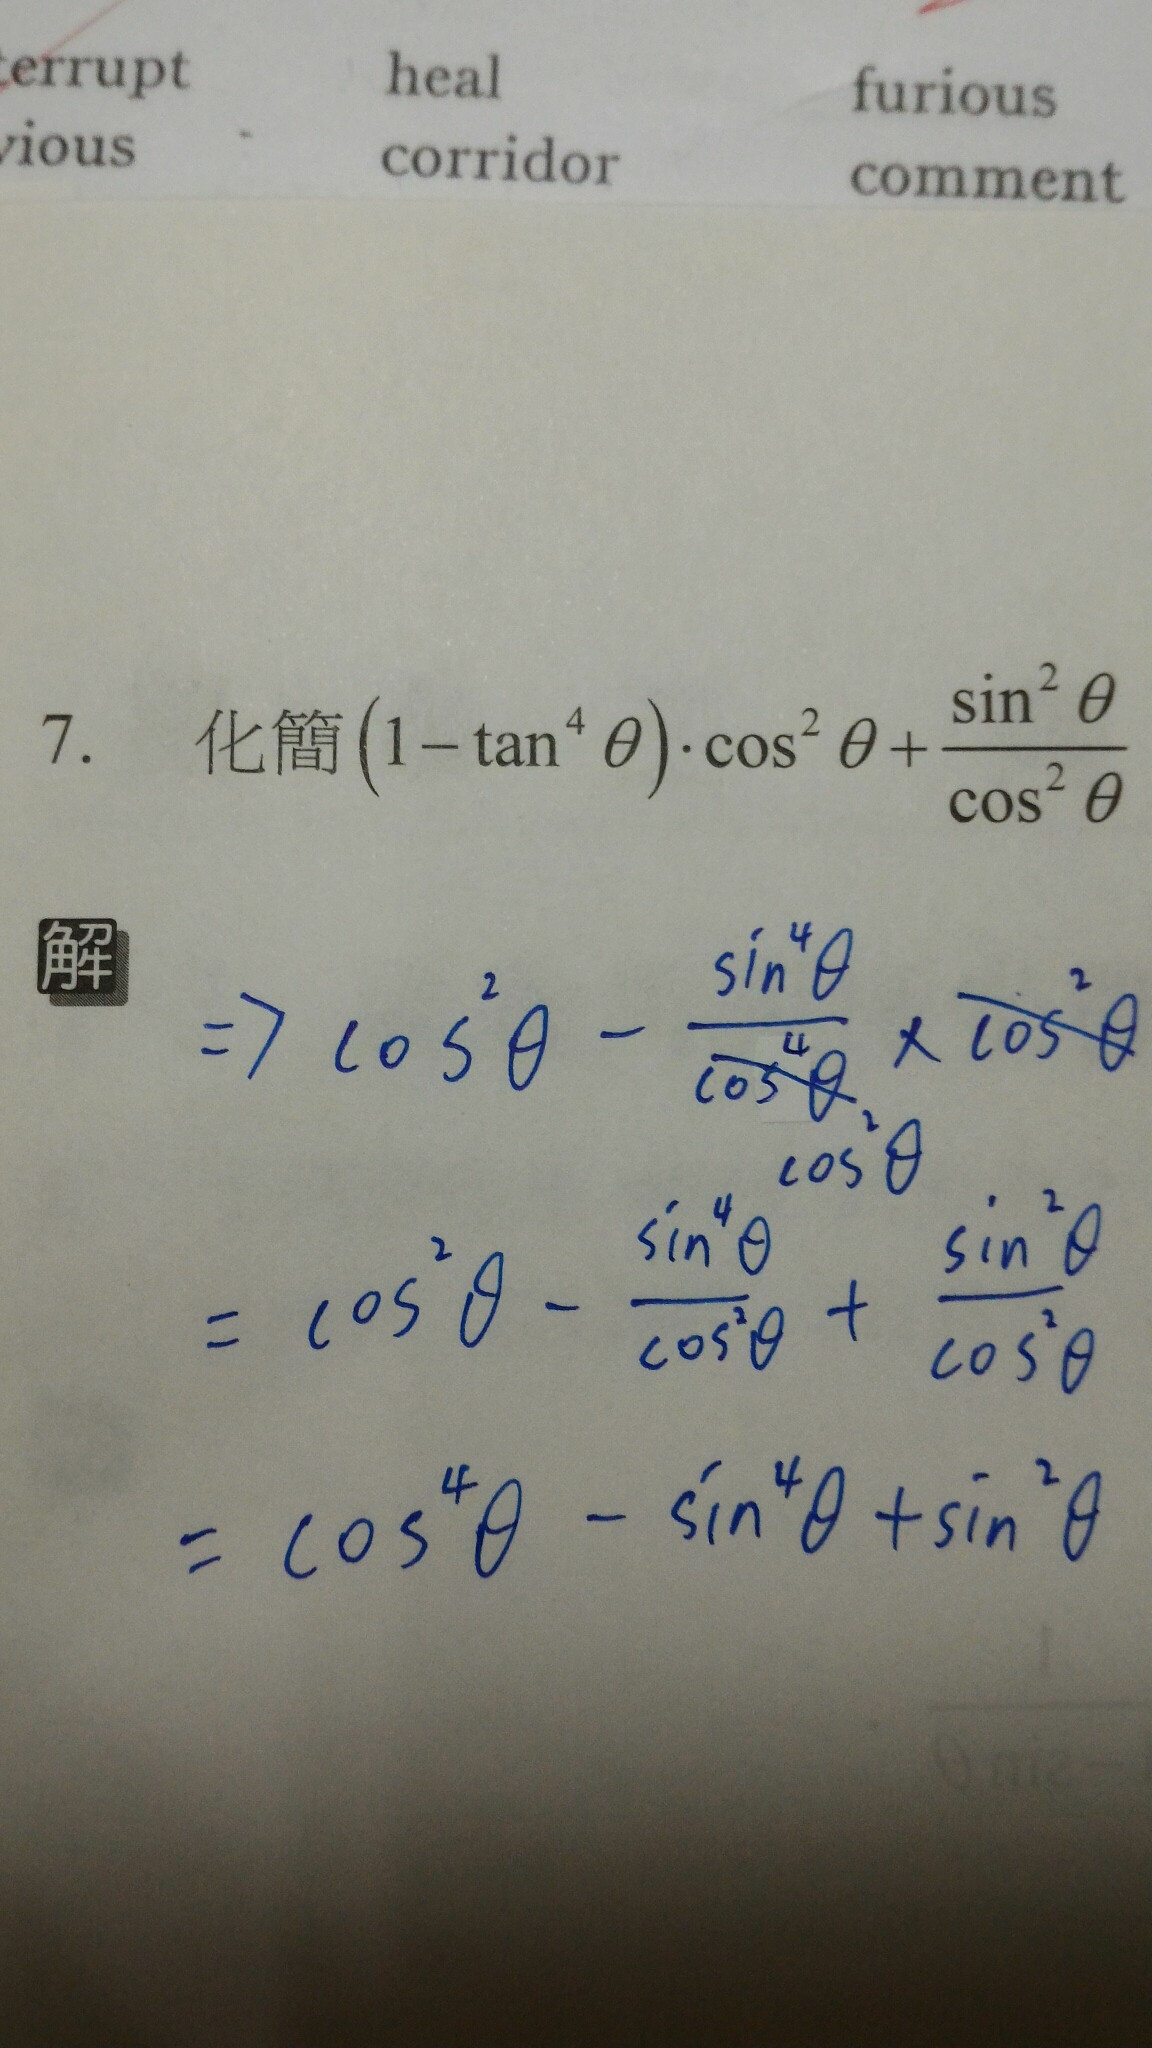 terrupt heal furious
vious corridor comment
7. 化簡(1−tan⁴ θ)·cos² θ+sin² θ/cos² θ
解
=> cos²θ − sin⁴θ/cos⁴θ × cos²θ
cos²θ
= cos²θ − sin⁴θ/cos²θ + sin²θ/cos²θ
= cos⁴θ − sin⁴θ + sin²θ